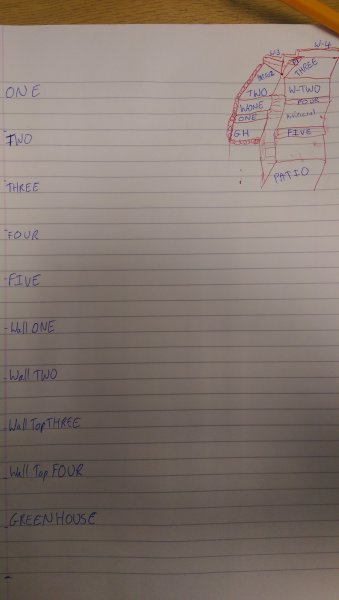 W-3
W-4
THREE
TWO
W-TWO
WONE
FOUR
ONE
GH
FIVE
PATIO
ONE
TWO
THREE
FOUR
FIVE
Wall ONE
Wall TWO
Wall Top THREE
Wall Top FOUR
GREENHOUSE